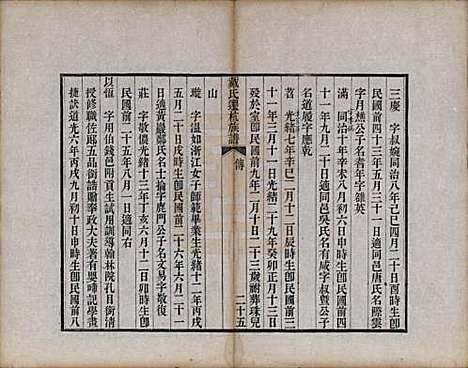 三慶　字叔婉同治八年己巳四月二十日酉時生卽
民國前四十三年五月三十一日適同邑唐氏名際雲
字月樵公子名耆年字雄英
滿　同治十年辛未八月初六日申時生卽民國前四
十一年九月二十日同邑吳氏名有咸字叔暨公子
名道履字應乾
苕　光緒七年辛巳二月十二日辰時生卽民國前三
十一年三月十一日光緒二十九年癸卯正月十三日
歿於室卽民國前九年二月十日二十三歲祔葬珠兒
戴氏遷杭族譜　傳　二十五
山
璇　字溫如浙江女子師範畢業生光緒十二年丙戌
五月二十日戌時生卽民國前二十六年六月二十一
日適黃巖鄭氏名士掄字鹿門公子名文易字敬復
莊　字敬優光緒十三年丁亥六月十二日卯時生卽
民國前二十五年八月一日適同右
以恆　字用伯錢邑附貢生試用訓導翰林院孔目銜請
授修職佐郎五品銜誥贈奉政大夫著有嬰唾記學畫
捷訣道光六年丙戌九月初十日申時生卽民國前八